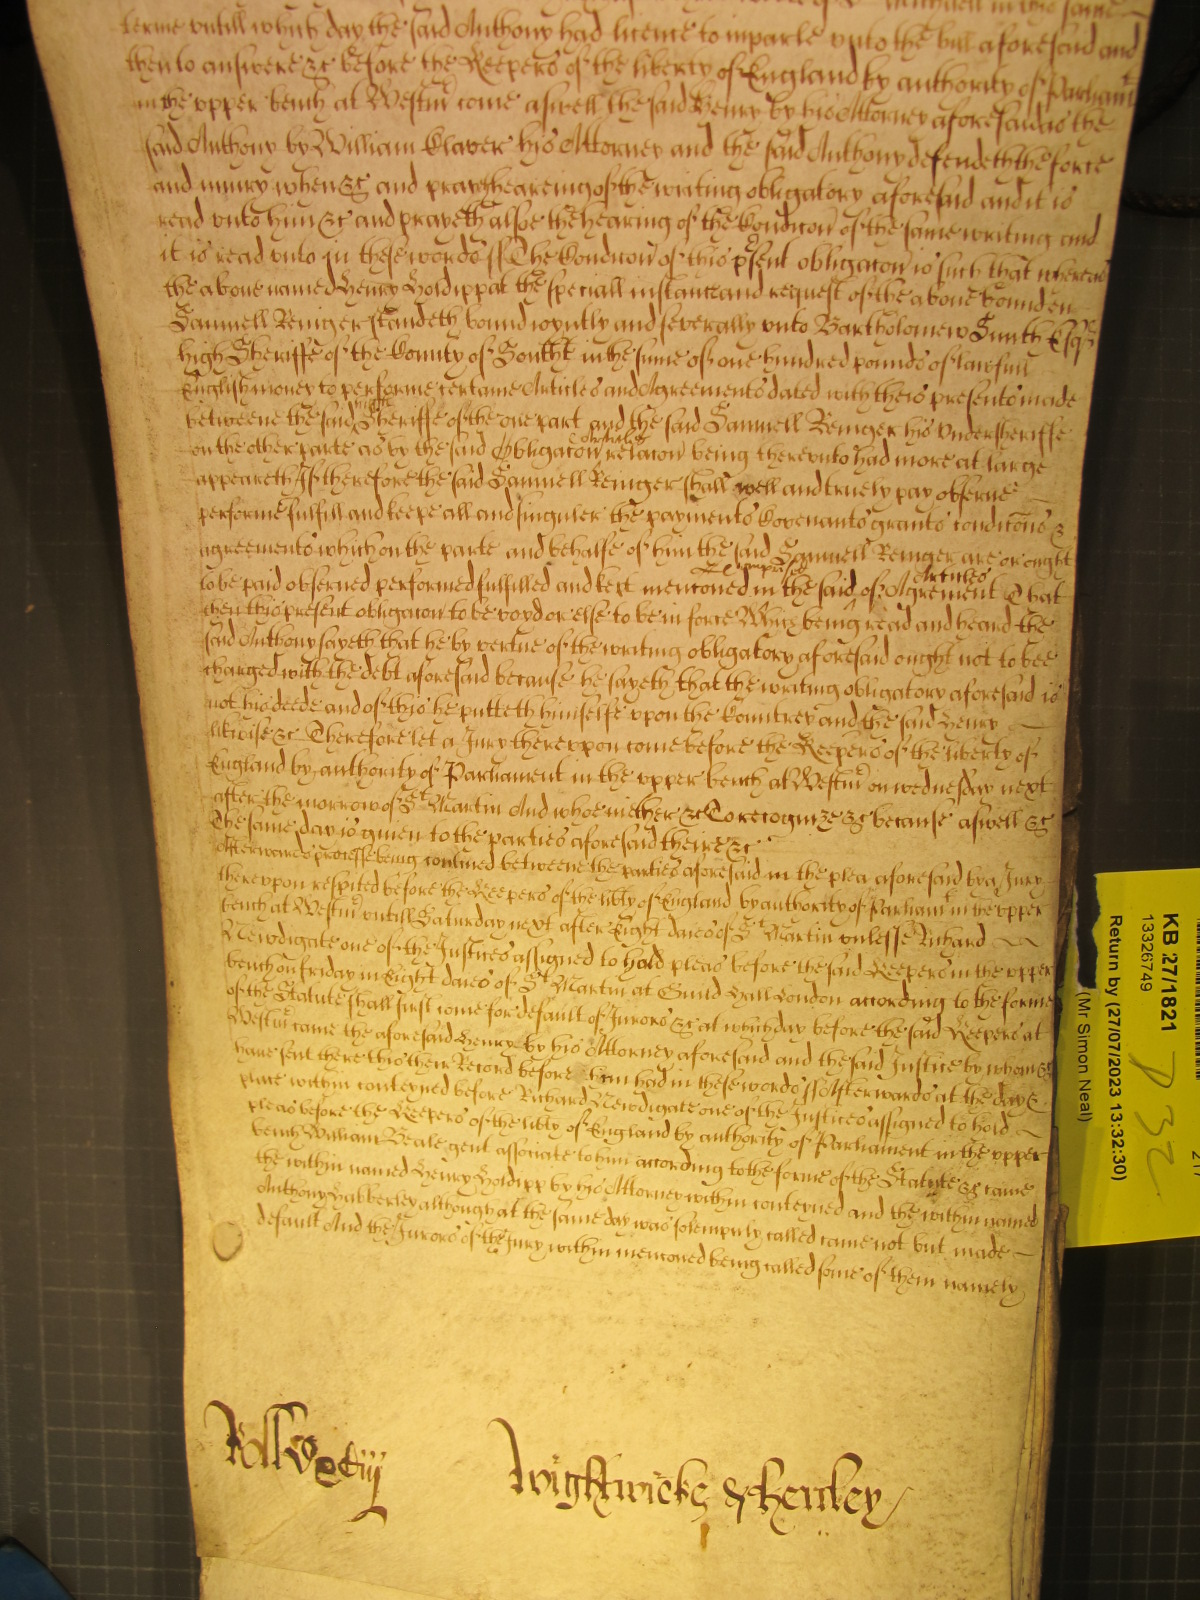 in this same
terme untill which day the said Anthony had licence to imparle unto the bill aforesaid and
then to answere &c before the Keepers of the liberty of England by authority of Parliamt
in the upper bench at Westmr come aswell the said Henry by his Attorney aforesaid as the
said Anthony by William Clarer his Attorney and the said Anthony defendeth the force
and iniury when &c and prayeth heareing of the writing obligatory aforesaid and it is
read unto him &c and prayeth alsoe the hearing of the Condicon of the same writing and
it is read unto in these words ss The Condicon of this psent obligacon is such that whereas
the above named Henry Holdipp at the speciall instance and request of the above bounden
Samuell Reniger standeth bound ioyntly and severally unto Bartholomew Smith Esqr
high Sheriffe of the County of Southt in the sume of one hundred pounds of lawfull
English money to performe certaine Articles and Agreements dated with theis presents made
betweene the said high Sheriffe of the one part and the said Samuell Reniger his Undersheriffe
on the other parte as by the said Obligacon relacon being thereunto had more at large
appeareth If therefore the said Samuell Reniger shall well and truely pay observe
performe fulfill and keepe all and singuler the payments Covenants grants condicons &
agreements which on the parte and behalfe of him the said Samuell Reniger are or ought
to be paid observed performed fulfilled and kept menconed in the said Articles of Agrement That
then this present obligacon to be voyd or else to be in force Which being read and heard the
said Anthony sayeth that he by vertue of the writing obligatory aforesaid ought not to bee
charged with the debt aforesaid because he sayeth that the writing obligatory aforesaid is
not his deede and of this he putteth himselfe upon the Countrey and the said Henry
likwise &c Therefore let a Jury thereupon come before the Keepers of the liberty of
England by authority of Parliament in the upper bench at Westmr on wednesday next
after the morrow of St Martin And whoe neither &c To recognize &c because aswell &c
The same day is given to the parties aforesaid there &c
Afterwards processe being continued betweene the parties aforesaid in the plea aforesaid by a Jury
thereupon respited before the Keepers of the libty of England by authority of Parliamt in the upper
bench at Westmr untill Saturday next after Eight daies of St Martin unlesse Richard
Newdigate one of the Justices assigned to hold pleas before the said Keepers in the upper
bench on friday in Eight daies of St Martin at Guild Hall London according to the forme
of the Statute shall first come for default of Jurors &c at which day before the said Keepers at
Westmr came the aforesaid Henry by his Attorney aforesaid and the said Justice by whom &c
have sent there this their Record before had in these words ss Afterwards at the day &
place within conteyned before Richard Newdigate one of the Justices assigned to hold
pleas before the Keepers of the libty of England by authority of Parliament in the upper
bench William Beale gent associate to him according to the forme of the Statute &c came
the within named Henry Holdipp by his Attorney within conteyned and the within named
Anthony Habberley although at the same day was solempnly called came not but made
default And the Jurors of the Jury within menconed being called some of them namely
Wightwicke & Henley
KB 27/1821
13326749
Return by (27/07/2023 13:32:30)
(Mr Simon Neal)